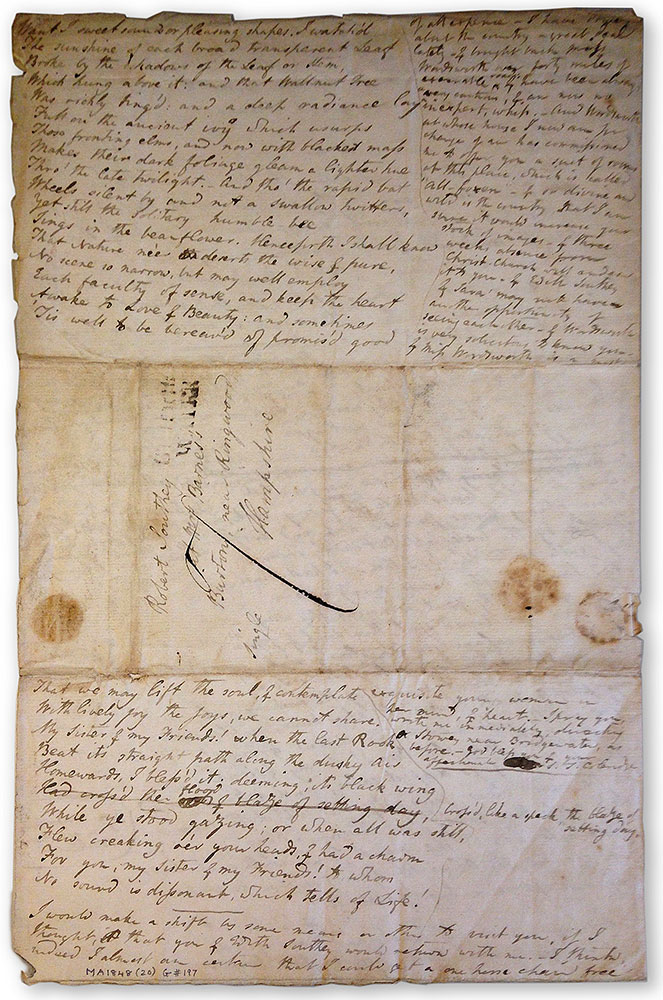 Want I sweet sounds or pleasing shapes. I watch'd
The sunshine of each broad transparent Leaf
Broke by the Shadows of the Leaf or Stem,
Which hung above it: and that Wall-nut Tree
Was richly ting'd: and a deep radiance lay
Full on the ancient ivy which usurps
Those fronting elms, and now with blackest mass
Makes their dark foliage gleam a lighter hue
Thro' the late twilight. And tho' the rapid bat
Wheels silent by and not a swallow twitters,
Yet still the solitary humble bee
Sings in the beanflower. Henceforth I shall know
That Nature ne'er deserts the wise & pure,
No scene is narrow, but may well employ
Each faculty of sense, and keep the heart
Awake to Love & Beauty: and sometimes
'Tis well to be bereav'd of promis'd good
That we may lift the soul, & contemplate
With lively joy the joys, we cannot share.
My Sister & my Friends! when the last Rook
Beat it's straight path along the dusky air
Homewards, I bless'd it; deeming, it's black wing
Had cross'd the flood & blaze of setting day,
Cross'd, like a speck, the blaze of
setting day,
While ye stood gazing; or when all was still,
Flew creaking o'er your heads, & had a charm
For you, my Sister & my Friends! to whom
No sound is dissonant, which tells of Life!
I would make a shift by some means or other to visit you, if I
thought, that you & Edith Southey would return with me. — I think,
indeed I almost am certain that I could get a one horse chaise free
of all expence — I have driven
about the country a great deal
lately — & brought back Miss
Wordsworth over forty miles of
execrable roads: & have been always
very cautious, & am now no
inexpert whip. — And Wordsworth
at whose house I now am for
change of air has commissioned
me to offer you a suit of rooms
at this place, which is called
All-foxen — & so divine and
wild is the country that I am
sure it would increase your
stock of images — & three
weeks' absence from
Christ Church will endear
it to you — & Edith Southey
& Sara may not have
another opportunity of
seeing each other — & Wordsworth
is very solicitous to know you —
& Miss Wordsworth is a most
exquisite young woman in
her mind, & heart. — I pray you
write me immediately, directing
Stowey near Bridgewater, as
before. — God bless
affectionate S. T. Coleridge
Robert Southey
at Mrs Barnes's
Burton near Ringwood
Hampshire
Single
MA1848 (20) G#197